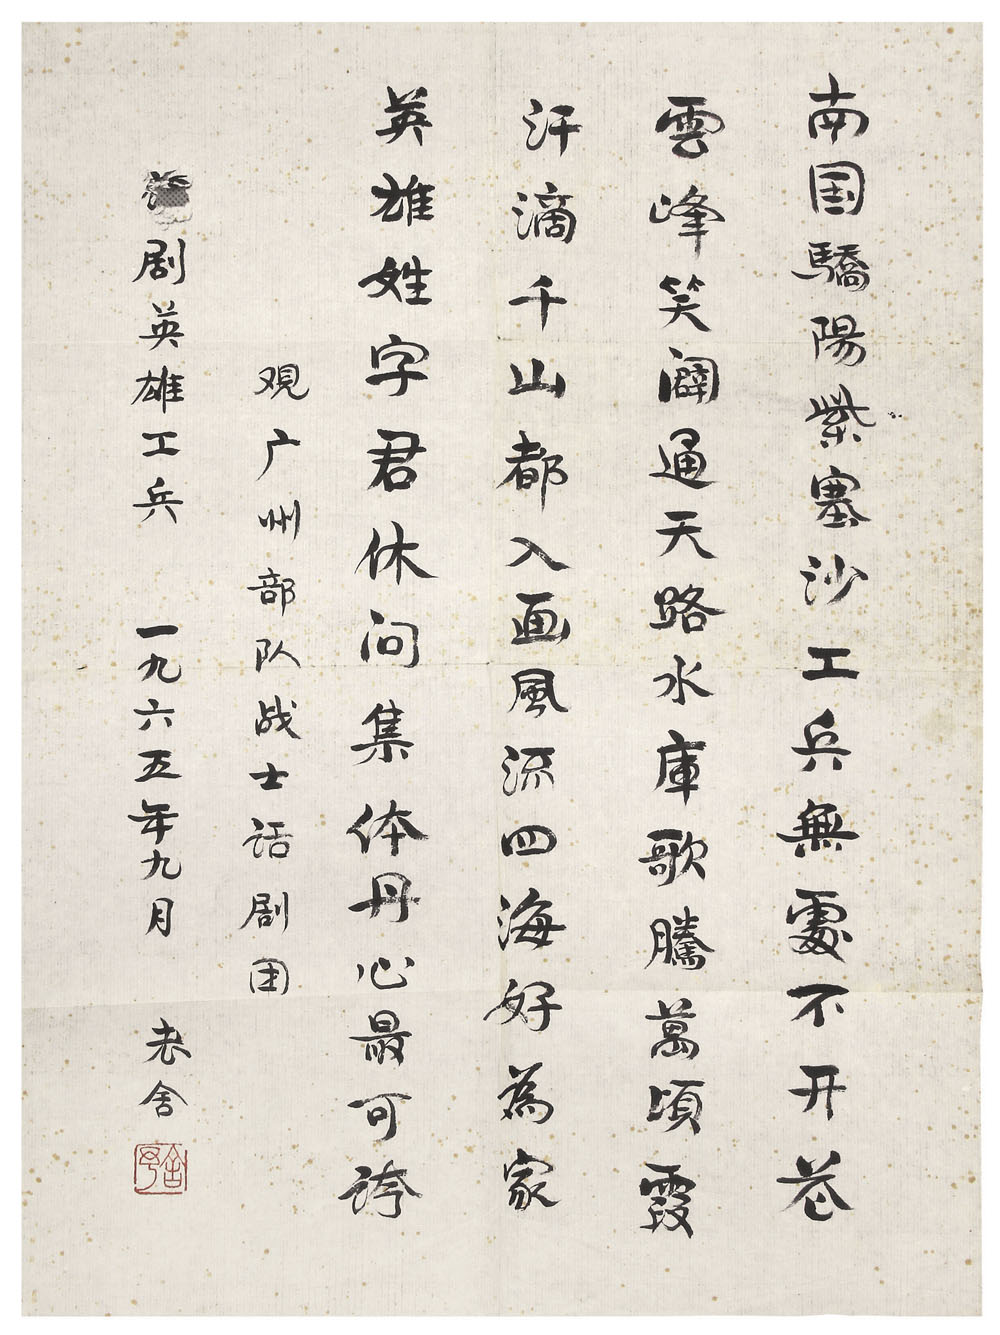 南国驕陽紫塞沙工兵無處不开花
雲峰笑闢通天路水庫歌騰萬頃霞
汗滴千山都入画風流四海好為家
英雄姓字君休问集体丹心最可誇
观广州部队战士话剧团
剧英雄工兵 一九六五年九月 老舍
舍予